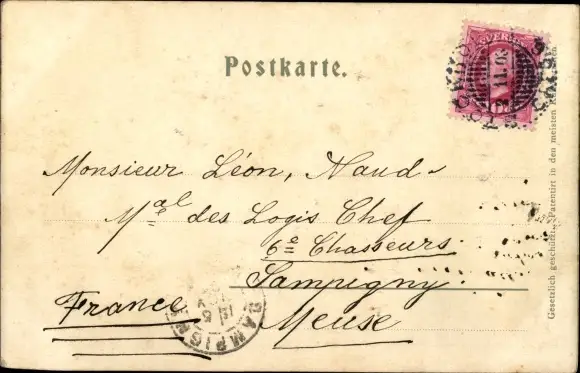 Postkarte.
SVERIGE
11.03
Monsieur Léon, Naud
Mal des Logis Chef
6e Chasseurs
Sampigny
France
Meuse
SAMPIGNY
Gesetzlich geschützt. Patentirt in den meisten